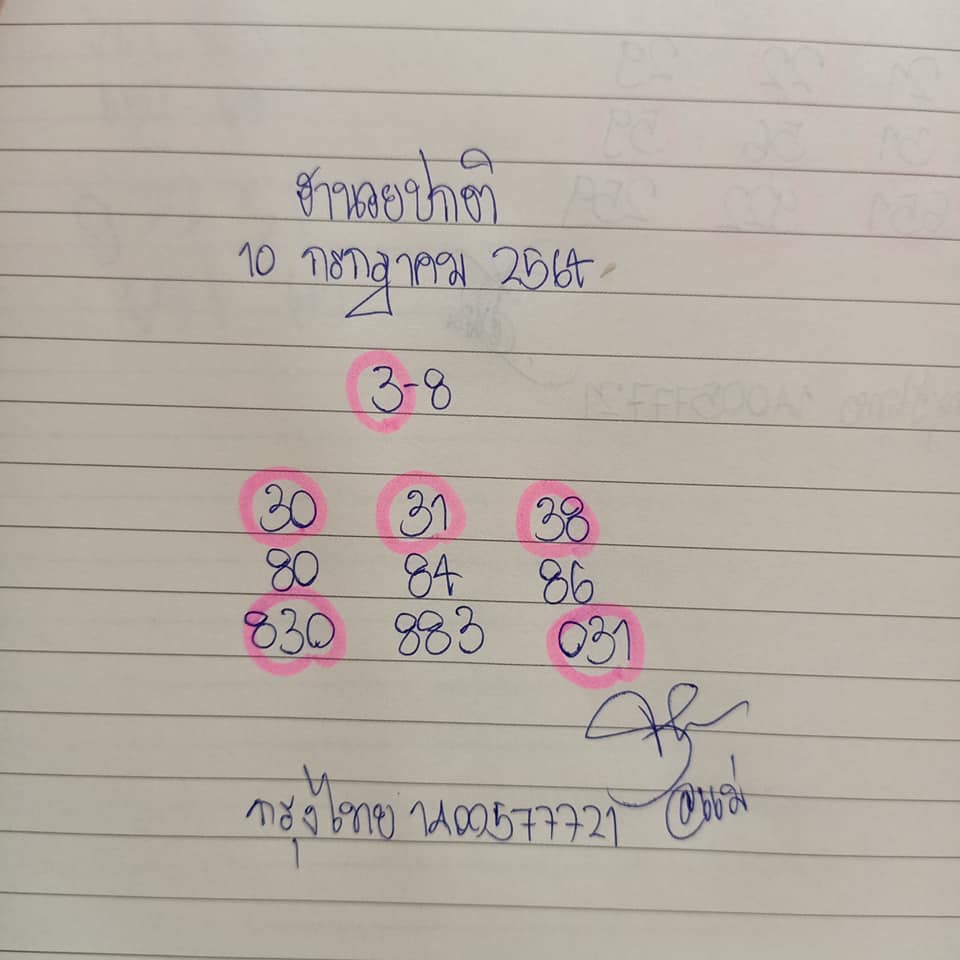 ฮานอยปกติ
10 กรกฎาคม 2564
3-8
30 31 38
80 84 86
830 883 031
กรุงไทย 1400577721 @แม่